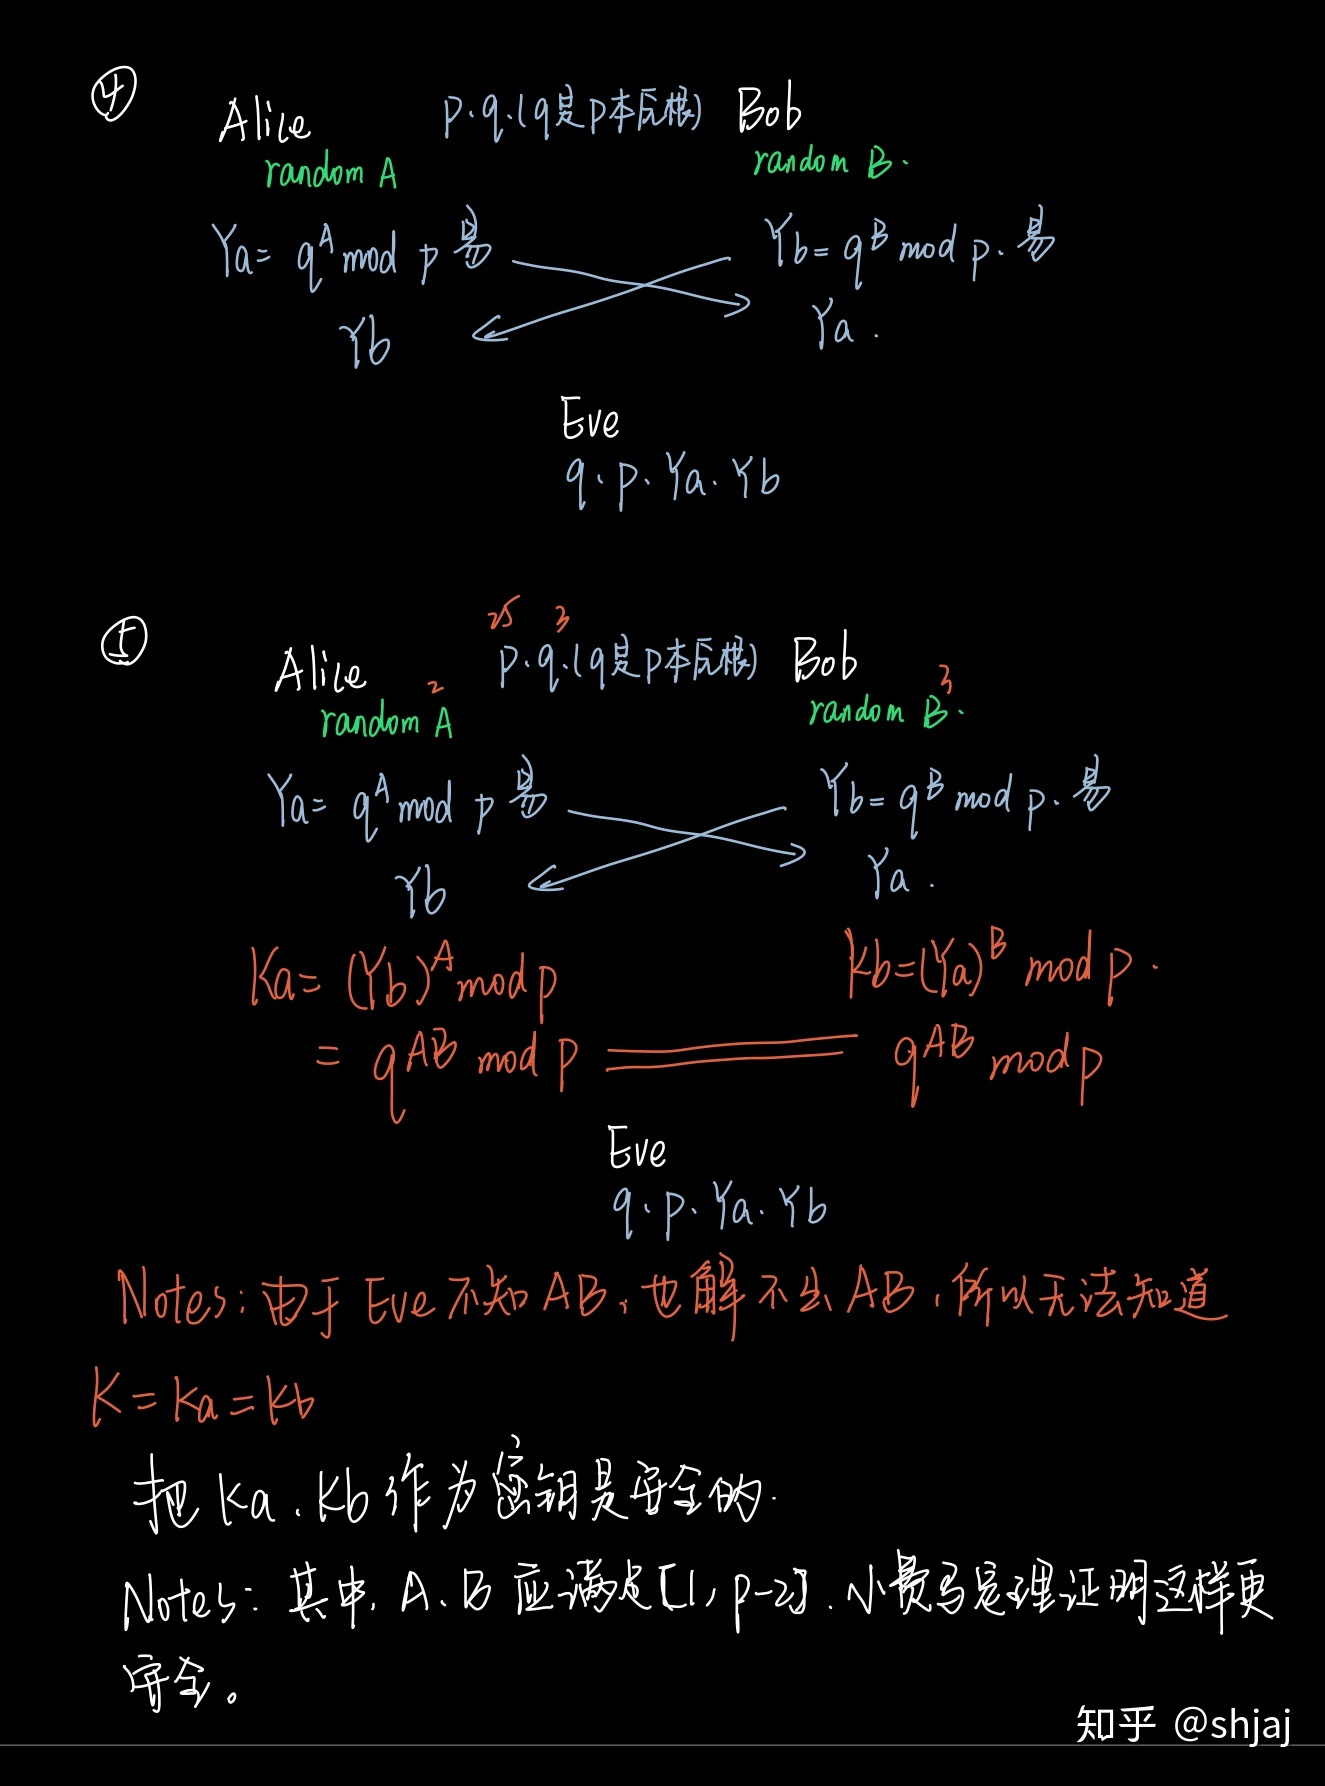 ④
Alice p.q.(q是p本原根) Bob
random A random B.
Ya= q^A mod p 易 Yb= q^B mod p. 易
Yb Ya.
Eve
q.p.Ya.Yb
⑤
25 3
Alice p.q.(q是p本原根) Bob
2 3
random A random B.
Ya= q^A mod p 易 Yb= q^B mod p. 易
Yb Ya.
Ka= (Yb)^A mod p Kb=(Ya)^B mod p.
= q^AB mod p = q^AB mod p
Eve
q.p.Ya.Yb
Notes: 由于 Eve 不知 AB, 也解不出 AB, 所以无法知道
K = Ka = Kb
把 Ka、Kb 作为密钥是安全的.
Notes: 其中, A、B 应满足[1, p-2]. 小费马定理证明这样更
安全。
知乎 @shjaj